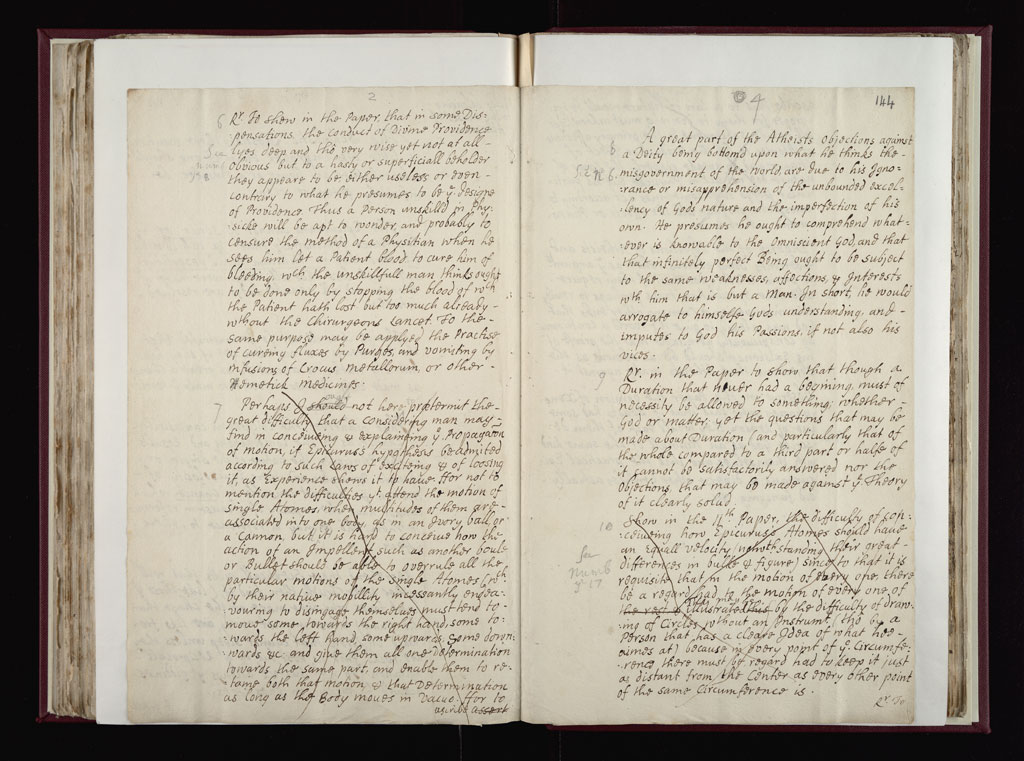 2
6 Rr. To shew in the Paper, that in some Dis-
pensations, the conduct of Divine Providence
lyes deep and tho very wise yet not at all-
obvious but to a hasty or superficiall beholder
they appeare to be either useless or even-
contrary to what he presumes to be ye designe
of Providence. Thus a Person unskilld in Phy-
sicke will be apt to wonder, and probably to
censure the method of a Physitian when he
sees him let a Patient blood to cure him of
bleeding, wch the unskillfull man thinks ought
to be done only by stopping the blood of wch
the Patient hath lost but too much already-
without the Chirurgeons Lancet. To the-
same purpose may be applyed the Practise
of cureing fluxes by Purges, and vomiting by
infusions of Crocus metallorum, or other-
Hemetick medicines.
7 Perhaps I should not here prætermit the-
great difficulty that a considering man may-
find in conceiving & explaining ye Propagaton
of motion, if Epicurus's hypothesis be admited
according to such Laws of exciteing & of loosing
it, as Experience shews it to have. ffor not to
mention the difficulties yt attend the motion of
single Atomes, when multitudes of them are-
associated into one body, as in an Ivory ball or
a Cannon but it is hard to conceive how the
action of an Impellent, such as another boule
or Bullet should be able to overrule all the
particular motions of the single Atomes (wch
by their native mobility incessantly endea-
vouring to disingage themselves must tend to-
move some towards the right hand, some to-
wards the left hand, some upwards, some down-
wards &c. and give them all one determination
towards the same part, and enable them to re-
taine both that motion & that Determination
as long as the Body moves in Vacuo. ffor to
ascribe assert
4
144
8 A great part of the Atheists objections against
a Deity being bottomd upon what he thinks the-
misgovernment of the World, are due to his Igno-
rance or misapprehension of the unbounded excel-
lency of Gods nature and the imperfection of his
own. He presumes he ought to comprehend what-
ever is knowable to the Omniscient God, and that
that infinitely perfect Being ought to be subject
to the same weaknesses, affections, & Interests
wth him that is but a Man. In short, he would
arrogate to himselfe Gods understanding, and-
imputes to God his Passions, if not also his
vices.
9 Rr. in the Paper to show that though a
Duration that never had a begining, must of
necessity be allowed to something; whether-
God or matter, yet the questions that may be
made about Duration (and particularly that of
the whole compared to a third part or halfe of
it cannot be satisfactorily answered nor the
Objections, that may be made against ye Theory
of it clearly solvd.
10 Show in the 11th Paper, the difficulty of con-
ceiveing how Epicurus's Atomes should have
an equall velocity (notwithstanding their great-
differences in bulke & figure) since to that it is
requisite that in the motion of every one, there
be a regard had to the motion of every one of
the rest & Illustrate this by the difficulty of draw-
ing of Circles without an Instrumt. (tho by a
Person that has a cleare Idea of what hee-
aimes at) because in every point of ye Circumfe-
rence there must be regard had to keep it just
as distant from the Center as every other point
of the same Circumference is.
See
Numb
Rr. To